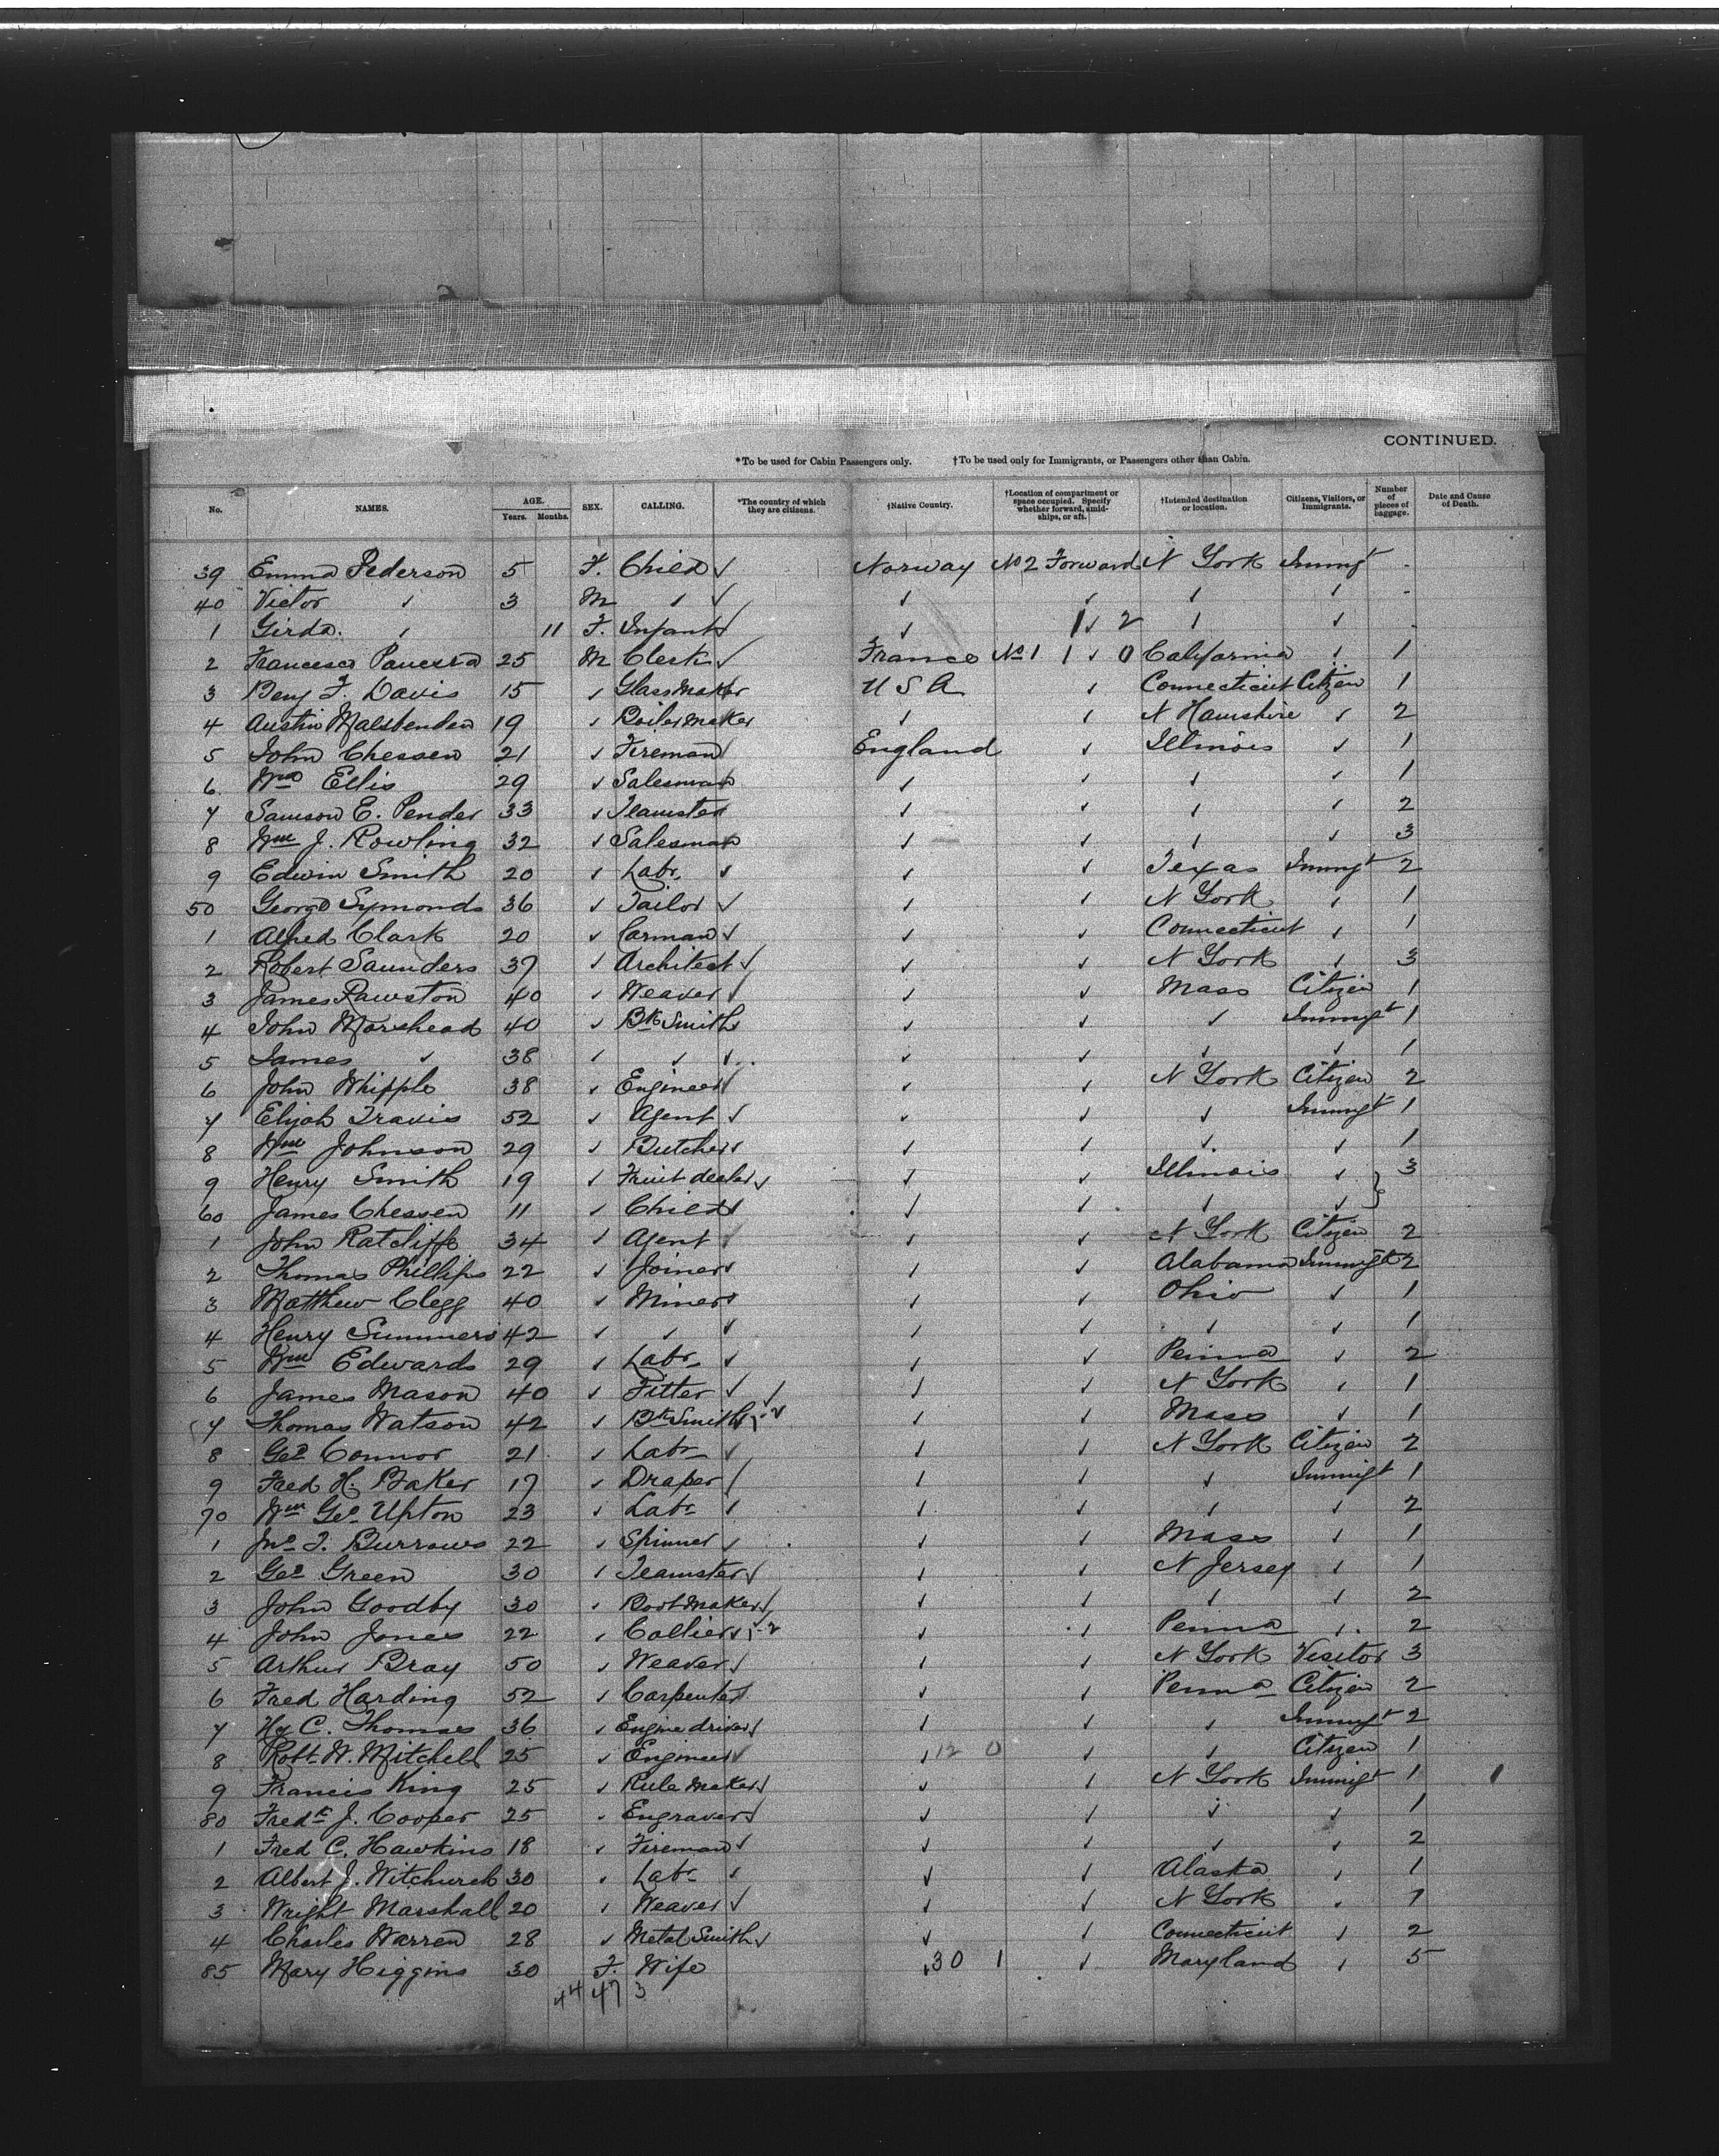 CONTINUED.
*To be used for Cabin Passengers only. †To be used only for Immigrants, or Passengers other than Cabin.
No. NAMES. AGE. Years. Months. SEX. CALLING. *The country of which they are citizens. †Native Country. †Location of compartment or space occupied. Specify whether forward, amidships, or aft. †Intended destination or location. Citizens, Visitors, or Immigrants. Number of pieces of baggage. Date and Cause of Death.
39 Emma Pederson 5 F. Child ✓ Norway No 2 Forward N York Immigt -
40 Victor ✓ 3 M ✓ ✓ ✓ ✓ ✓ ✓ -
1 Girda. ✓ 11 F. Infant ✓ ✓ 1 ✓ 2 ✓ ✓
2 Francesco 25 M Clerk ✓ France No 1 1 ✓ 0 California ✓ 1
3 Benj F. Davis 15 ✓ Glass Maker U S A ✓ Connecticut Citizen 1
4 Austin Malsbenden 19 ✓ Boiler Maker ✓ ✓ N Hamshire ✓ 2
5 John Chessen 21 ✓ Fireman England ✓ Illinois ✓ 1
6 Wm Ellis 29 ✓ Salesman ✓ ✓ ✓ ✓ 1
7 Samson E. Pender 33 ✓ Teamster ✓ ✓ ✓ ✓ 2
8 Wm J. Rowling 32 ✓ Salesman ✓ ✓ ✓ ✓ 3
9 Edwin Smith 20 ✓ Labr. ✓ ✓ ✓ Texas Immigt 2
50 George Symonds 36 ✓ Tailor ✓ ✓ ✓ N York ✓ 1
1 Alfred Clark 20 ✓ Carman ✓ ✓ ✓ Connecticut ✓ 1
2 Robert Saunders 37 ✓ Architect ✓ ✓ ✓ N York ✓ 3
3 James Rawston 40 ✓ Weaver ✓ ✓ ✓ Mass Citizen 1
4 John Morshead 40 ✓ Bk Smith ✓ ✓ ✓ Immigt 1
5 James ✓ 38 ✓ ✓ ✓ ✓ ✓ ✓ ✓ 1
6 John Whipple 38 ✓ Engineer ✓ ✓ ✓ N York Citizen 2
7 Elijah Travis 52 ✓ Agent ✓ ✓ ✓ ✓ Immigt 1
8 Wm Johnson 29 ✓ Butcher ✓ ✓ ✓ ✓ ✓ 1
9 Henry Smith 19 ✓ Fruit dealer ✓ ✓ ✓ Illinois ✓ } 3
60 James Chessen 11 ✓ Child ✓ ✓ ✓ ✓ ✓
1 John Ratcliffe 34 ✓ Agent ✓ ✓ ✓ N York Citizen 2
2 Thomas Phillips 22 ✓ Joiner ✓ ✓ ✓ Alabama Immigt 2
3 Matthew Clegg 40 ✓ Miner ✓ ✓ ✓ Ohio ✓ 1
4 Henry Summers 42 ✓ ✓ ✓ ✓ ✓ ✓ ✓ 1
5 Wm Edwards 29 ✓ Labr ✓ ✓ ✓ Penna ✓ 2
6 James Mason 40 ✓ Fitter ✓ ✓ ✓ N York ✓ 1
7 Thomas Watson 42 ✓ Bk Smith ✓ ✓ ✓ Mass ✓ 1
8 Geo Connor 21 ✓ Labr ✓ ✓ ✓ N York Citizen 2
9 Fred H. Baker 17 ✓ Draper ✓ ✓ ✓ ✓ Immigt 1
70 Wm Geo Upton 23 ✓ Labr ✓ ✓ ✓ ✓ ✓ 2
1 Jno T. Burrows 22 ✓ Spinner ✓ ✓ ✓ Mass ✓ 1
2 Geo Green 30 ✓ Teamster ✓ ✓ ✓ N Jersey ✓ 1
3 John Goodby 30 ✓ Boot Maker ✓ ✓ ✓ ✓ ✓ 2
4 John Jones 22 ✓ Collier ✓ ✓ ✓ Penna ✓ 2
5 Arthur Bray 50 ✓ Weaver ✓ ✓ ✓ N York Visitor 3
6 Fred Harding 52 ✓ Carpenter ✓ ✓ ✓ Penna Citizen 2
7 Hy C. Thomas 36 ✓ Engine driver ✓ ✓ ✓ ✓ Immigt 2
8 Robt. W. Mitchell 25 ✓ Engineer ✓ ✓ 12 0 ✓ ✓ Citizen 1
9 Francis King 25 ✓ Rule Maker ✓ ✓ ✓ N York Immigt 1
80 Fredk J. Cooper 25 ✓ Engraver ✓ ✓ ✓ ✓ ✓ 1
1 Fred C. Hawkins 18 ✓ Fireman ✓ ✓ ✓ ✓ ✓ 2
2 Albert J. Witchurch 30 ✓ Labr ✓ ✓ ✓ Alaska ✓ 1
3 Wright Marshall 20 ✓ Weaver ✓ ✓ ✓ N York ✓ 1
4 Charles Warren 28 ✓ Metal Smith ✓ ✓ ✓ Connecticut ✓ 2
85 Mary Higgins 30 F. Wife ✓ 30 1 ✓ Maryland ✓ 5
44 47 3